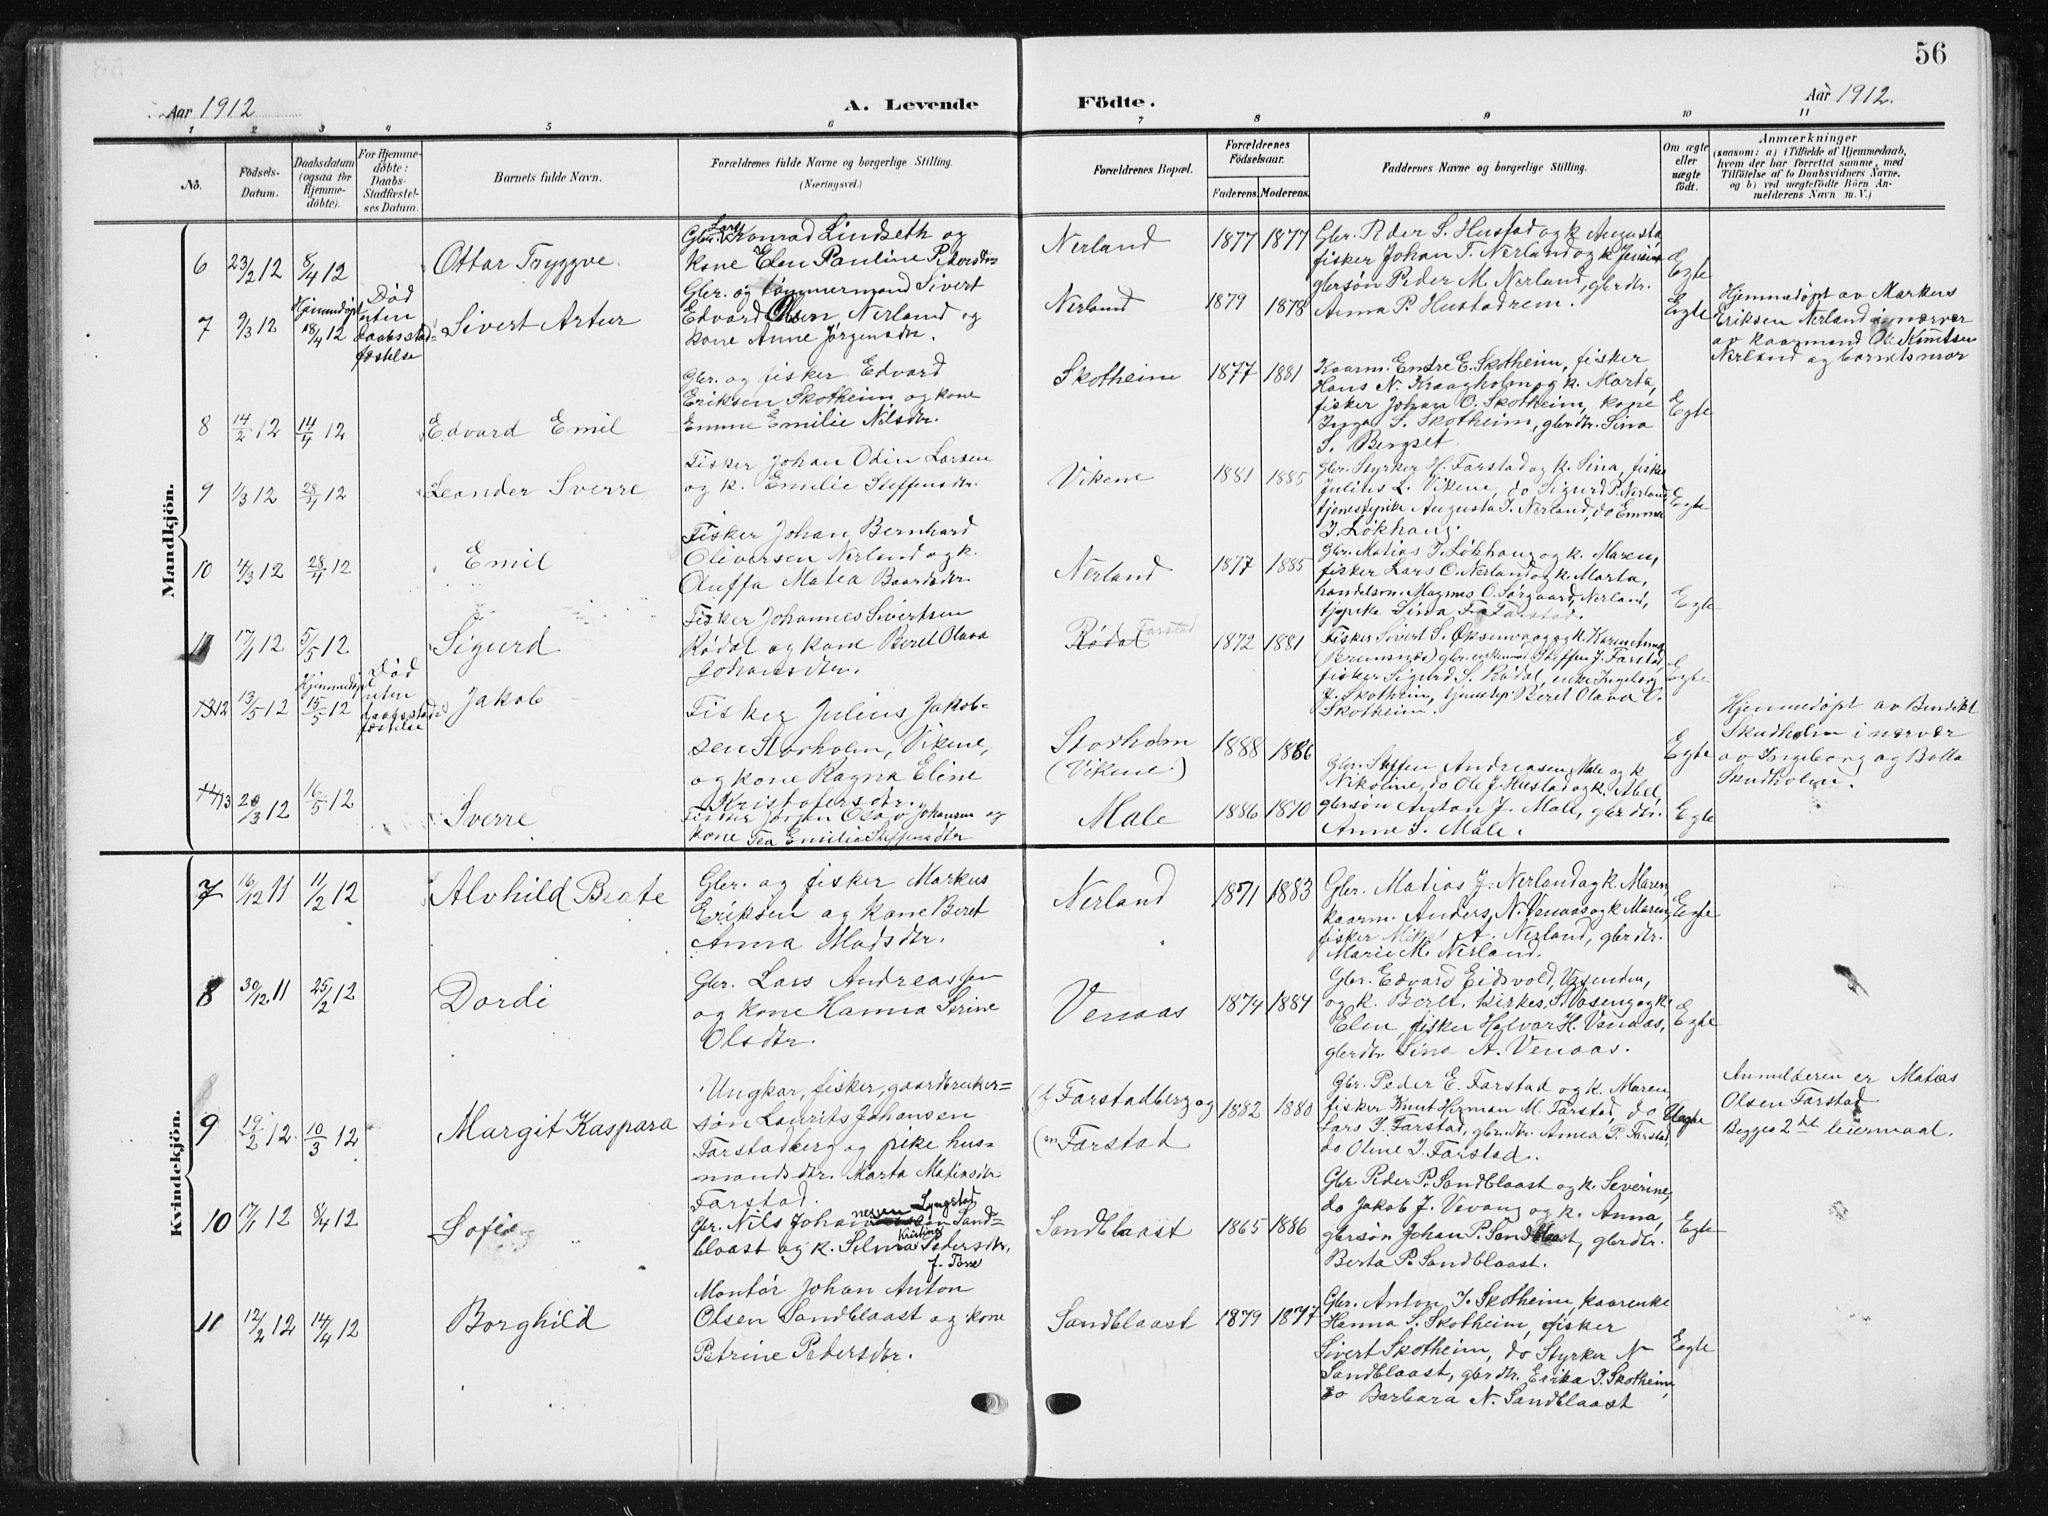 56
Aar 1912
A. Levende
Födte.
Aar 1912.
1 2 3 4 5 6 7 8 9 10 11
No.
Födsels-
Datum.
Daabsdatum
(ogsaa for
Hjemme-
döbte).
For Hjemme-
döbte:
Daabs-
Stadfæstel-
ses Datum.
Barnets fulde Navn.
Forældrenes fulde Navne og borgerlige Stilling.
(Næringsvei.)
Forældrenes Bopæl.
Forældrenes
Födselsaar.
Faderens.
Moderens.
Faddernes Navne og borgerlige Stilling.
Om ægte
eller
uægte
födt.
Anmærkninger
(saasom: a) i Tilfælde af Hjemmedaab,
hvem der har forrettet samme, med
Tilföielse af to Daabsvidners Navne,
og b) ved uægtefödte Börn An-
melderens Navn m. V.)
Mandkjön.
6 23/2 12 8/4 12 Ottar Tryggve.
Gbr. Lars Konrad Lindseth og
kone Elen Pauline Pedersdtr
Nerland 1877 1877
Gbr. Peder S. Hustad og k. Augusta,
fisker Johan T. Nerland og k. Jensine
gbrsøn Peder M. Nerland, gbrdtr.
Anna P. Hustadrem.
Egte
7 9/3 12 Hjemmedøpt 18/4 12
Død
uten
daabsstad-
fæstelse
Sivert Artur
Gbr. og tømmermand Sivert
Edvard Olsen Nerland og
kone Anne Jørgensdtr.
Nerland 1879 1878
Egte
Hjemmedøpt av Markus
Eriksen Nerland i nærvær
av kaarmand Ole Knutsen
Nerland og barnets mor
8 14/2 12 14/4 12 Edvard Emil
Gbr. og fisker Edvard
Eriksen Skotheim og kone
Emma Emilie Nilsdtr.
Skotheim 1877 1881
Kaarm. Endre E. Skotheim, fisker
Hans N. Kraagholm og k. Marta,
fisker Johan O. Skotheim, kone
Inga S. Skotheim, gbrdtr. Sina
S. Bergset.
Egte
9 1/3 12 28/4 12 Leander Sverre
Fisker Johan Odin Larsen
og k. Emilie Steffensdtr.
Vikene 1881 1885
Gbr. Styrker H. Farstad og k. Sina, fisker
Julius L. Vikene, do Sigurd P. Nerland
tjenestepike Augusta I. Nerland, do Emma
I. Løkhaug.
Egte
10 4/3 12 28/4 12 Emil
Fisker Johan Bernhard
Oliversen Nerland og k.
Oluffa Matea Baardsdtr
Nerland 1877 1885
Gbr. Matias I. Løkhaug og k. Maren,
fisker Lars O. Nerland og k. Marta,
handelsm. Magnus O. Sørgaard, Nerland,
tj. pike Sina F. Farstad.
Egte
11 17/1 12 5/5 12 Sigurd
Fisker Johannes Sivertsen
Rødal og kone Beret Olava
Johansdtr.
Rødal Farstad 1872 1881
Fisker Sivert S. Øksenvaag og k. Karen Anna
(Bremsnes) gbr. enkemand Steffen J. Farstad
fisker Sigurd S. Rødal, enke Ingeborg
J. Skotheim, tjenestepi. Beret Olava O.
Skotheim.
Egte
13 12 13/5 12 Hjemmedøpt 15/5 12
Død
uten
daabsstad-
fæstelse
Jakob
Fisker Julius Jakob-
sen Storholm, Vikene,
og kone Ragna Eline
Kristofersdtr.
Storholm
(Vikene)
1888 1886
Egte
Hjemmedøpt av Bendikt
Skudholm i nærvær
av Ingeborg og Bolla
Skudholm.
14 13 20/3 12 16/5 12 Sverre
Fisker Jørgen Olav Johansen og
kone Tea Emilia Steffensdtr
Male 1886 1870
Gbr. Steffen Andreasen Male og k
Nikoline, do Ole J. Hustad og k. Abel,
gbrsøn Anton J. Male, gbrdtr.
Anne S. Male.
Egte
Kvindekjön.
7 16/12 11 11/2 12 Alvhild Beate
Gbr. og fisker Markus
Eriksen og kone Beret
Anna Madsdtr.
Nerland 1871 1883
Gbr. Matias J. Nerland og k. Maren
kaarm. Anders N. Venaas og k Maren,
fisker Mikal A. Nerland, gbrdtr.
Marie M. Nerland.
Egte
8 30/12 11 25/2 12 Dordi
Gbr. Lars Andreassen
og kone Hanna Serine
Olsdtr.
Venaas 1874 1884
Gbr. Edvard Eidsvold, Vasenden,
og k. Beret, kirkes. S. Vaseng og k.
Elen, fisker Halvor H. Venaas,
gbrdtr. Sina A. Venaas.
Egte
9 19/2 12. 10/3 12 Margit Kaspara
Ungkar, fisker, gaardbruker=
søn Laurits Johansen
Farstadberg og pike hus=
mandsdtr. Marta Matiasdtr
Farstad.
(f Farstadberg og
(m Farstad
1882 1880
Gbr. Peder E. Farstad og k. Maren,
fisker Knut Herman M. Farstad, do
Lars I. Farstad, gbrdtr. Anna P. Farstad
do Oline I. Farstad.
Uegte
Anmelderen er Matias
Olsen Farstad
Begges 2det leiermaal.
10 17/1 12 8/4 12 Sofie
Gbr. Nils Johannessen Lyngstad Sand=
blaast og k. Selma Kristine Pedersdtr.
f. Tøsse
Sandblaast 1865 1886
Gbr. Peder P. Sandblaast og k. Severine,
do Jakob J. Vevang og k. Anna,
gbrsøn Johan P. Sandblaast, gbrdtr.
Berta P. Sandblaast.
Egte
11 12/2 12 14/4 12 Borghild
Montør Johan Anton
Olsen Sandblaast og kone
Petrine Pedersdtr.
Sandblaast 1879 1877
Gbr. Anton I. Skotheim, kaarenke
Hanna I. Skotheim, fisker
Sivert Skotheim, do Styrker N
Sandblaast, gbrdtr. Erika I. Skotheim,
do Barbara N. Sandblaast
Egte